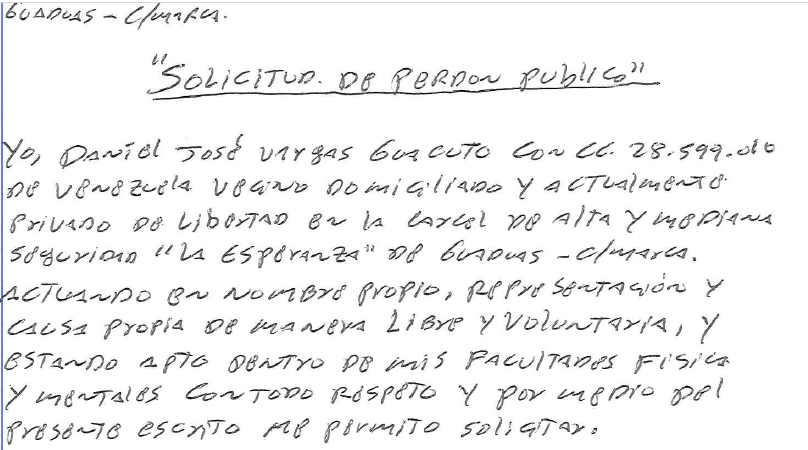 GUADUAS - C/MARCA.
"SOLICITUD. DE PERDON PUBLICO"
YO, DANIEL JOSÉ VARGAS GUACUTO CON CC. 28.599.010
DE VENEZUELA VECINO DOMICILIADO Y ACTUALMENTE
PRIVADO DE LIBERTAD EN LA CARCEL DE ALTA Y MEDIANA
SEGURIDAD "LA ESPERANZA" DE GUADUAS - C/MARCA.
ACTUANDO EN NOMBRE PROPIO, REPRESENTACIÓN Y
CAUSA PROPIA DE MANERA LIBRE Y VOLUNTARIA, Y
ESTANDO APTO DENTRO DE MIS FACULTADES FISICA
Y MENTALES CON TODO RESPETO Y POR MEDIO DEL
PRESENTE ESCRITO ME PERMITO SOLICITAR.